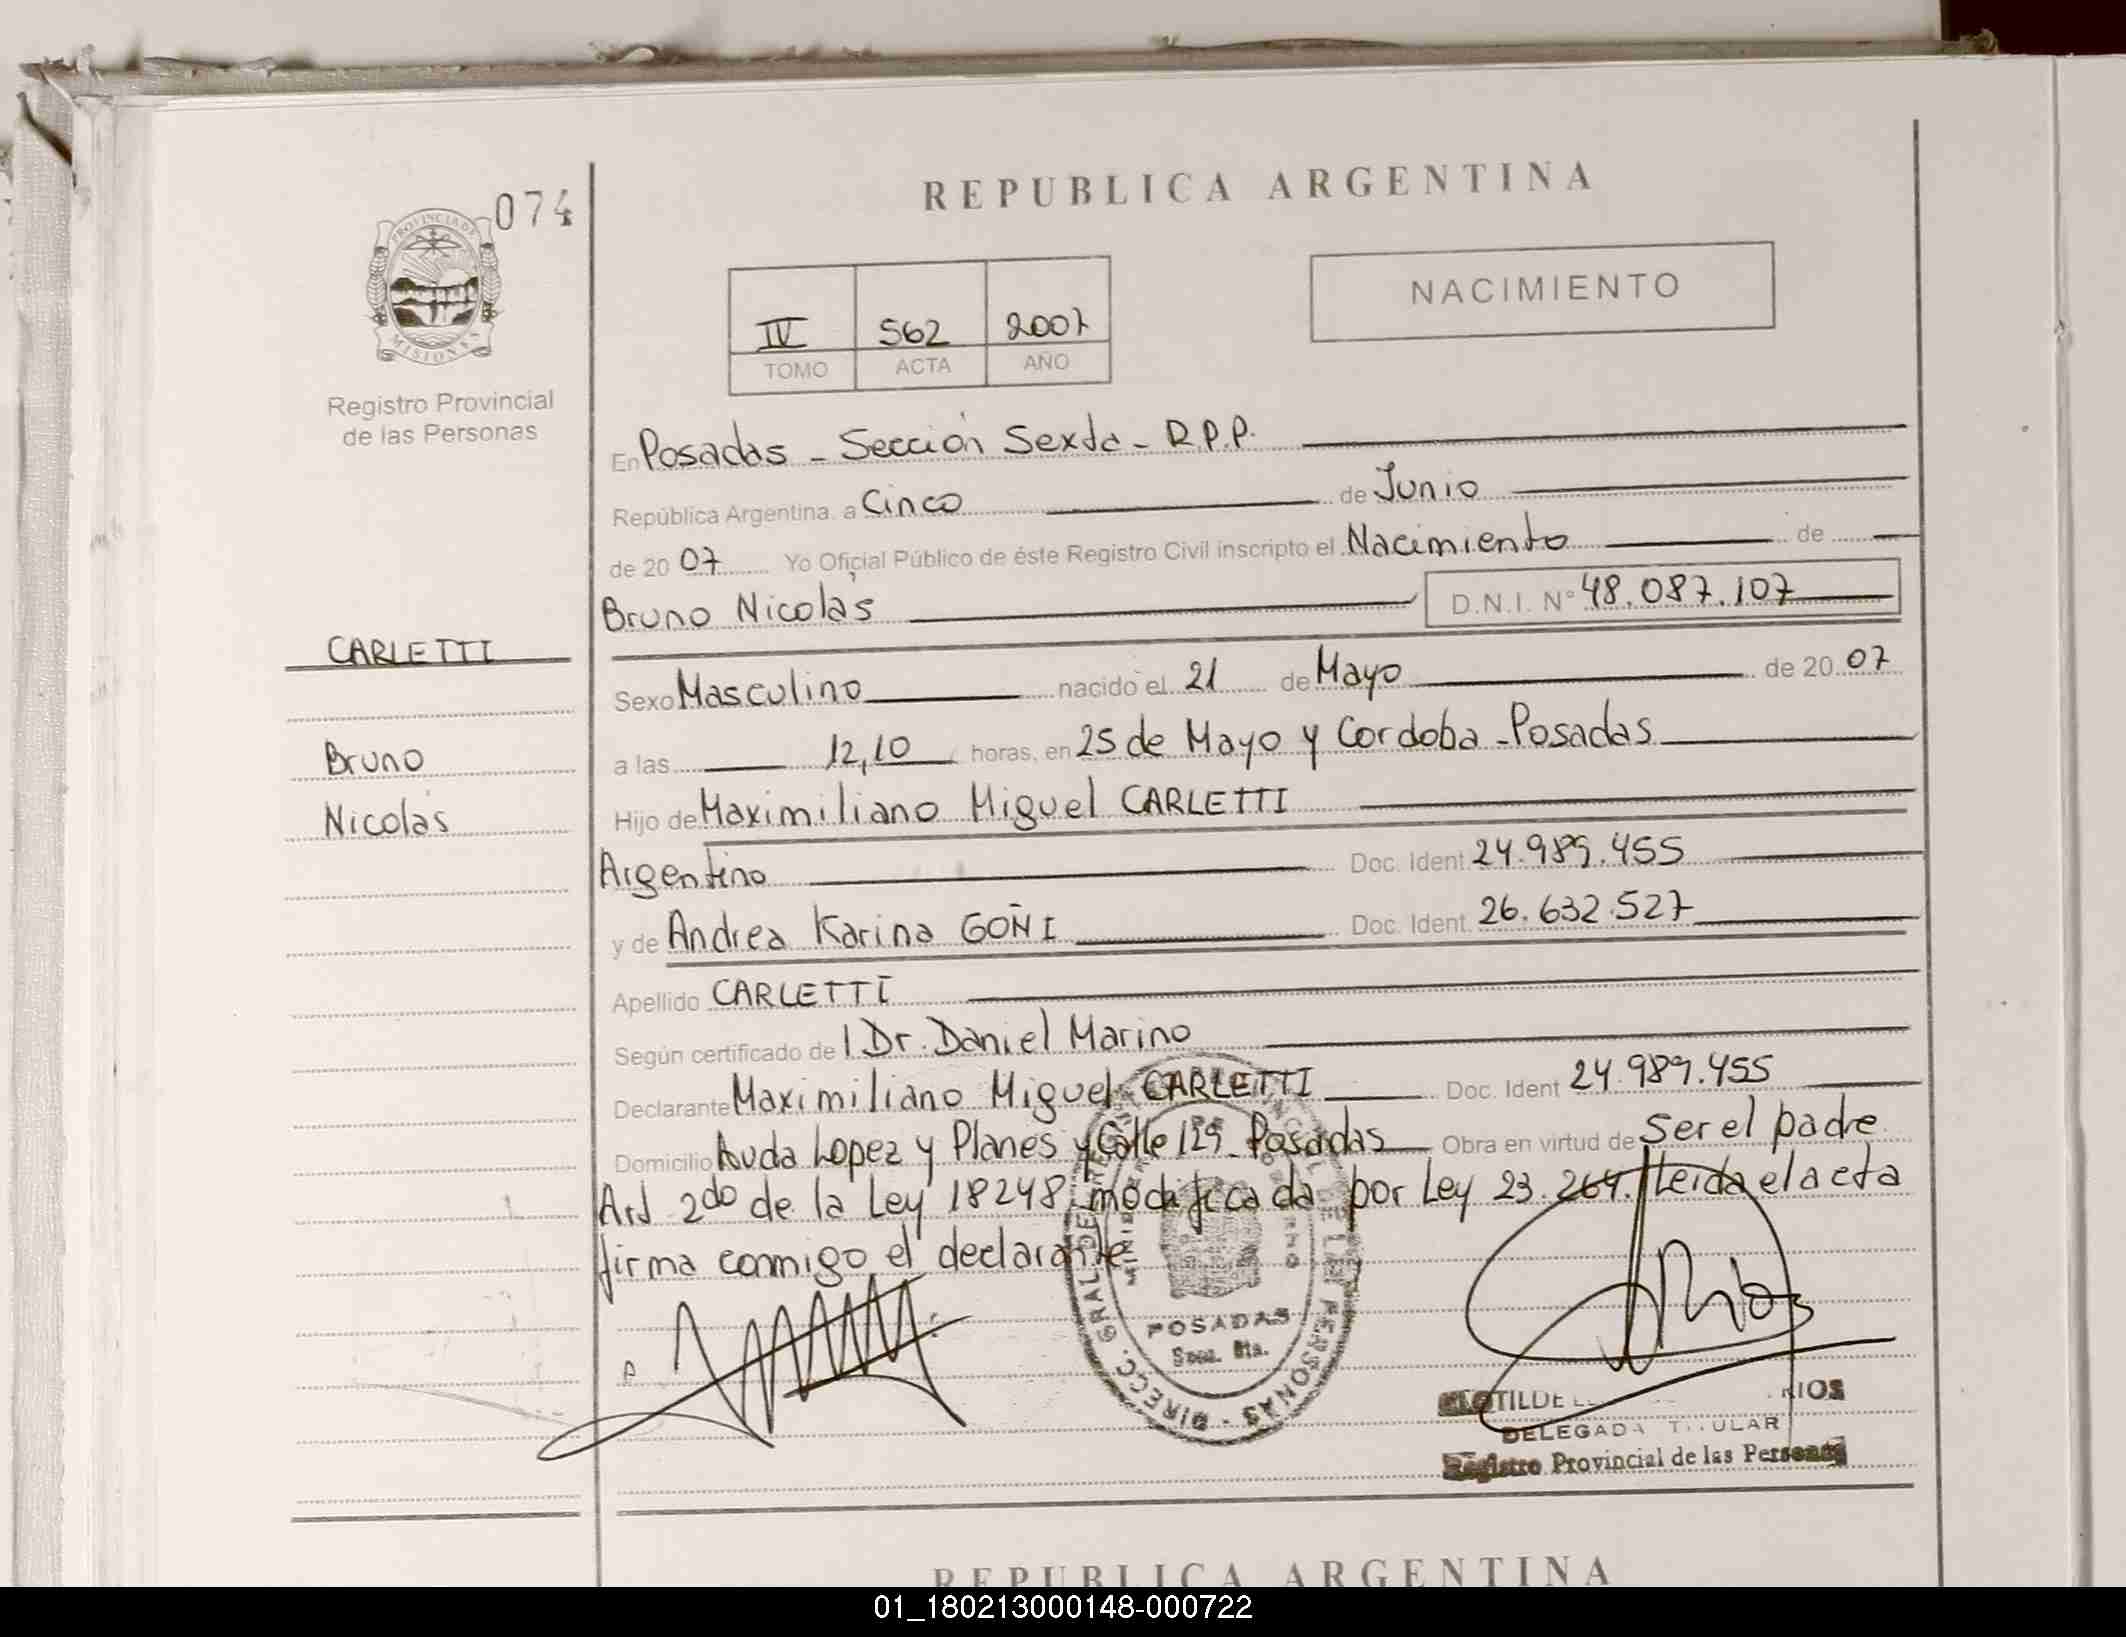 REPUBLICA ARGENTINA
074
PROVINCIA DE
MISIONES
Registro Provincial
de las Personas
NACIMIENTO
IV 562 2007
TOMO ACTA AÑO
En Posadas - Sección Sexta - R.P.P.
República Argentina, a Cinco de Junio
de 2007 Yo Oficial Público de éste Registro Civil inscripto el Nacimiento de
Bruno Nicolás D.N.I. N° 48.087.107
CARLETTI
Bruno
Nicolás
Sexo Masculino nacido el 21 de Mayo de 2007
a las 12,10 horas, en 25 de Mayo y Cordoba - Posadas
Hijo de Maximiliano Miguel CARLETTI
Argentino Doc. Ident. 24.989.455
y de Andrea Karina GOÑI Doc. Ident. 26.632.527
Apellido CARLETTI
Según certificado de l Dr. Daniel Marino
Declarante Maximiliano Miguel CARLETTI Doc. Ident 24.989.455
Domicilio Avda Lopez y Planes y Calle 129 - Posadas Obra en virtud de Ser el padre
Art 2do de la Ley 18248 modificada por Ley 23.264. Leida el acta
firma conmigo el declarante
DIRECC. GRAL. DE LAS PERSONAS
POSADAS
Secc. 6ta.
CLOTILDE
DELEGADA TITULAR
Registro Provincial de las Personas
REPUBLICA ARGENTINA
01_180213000148-000722